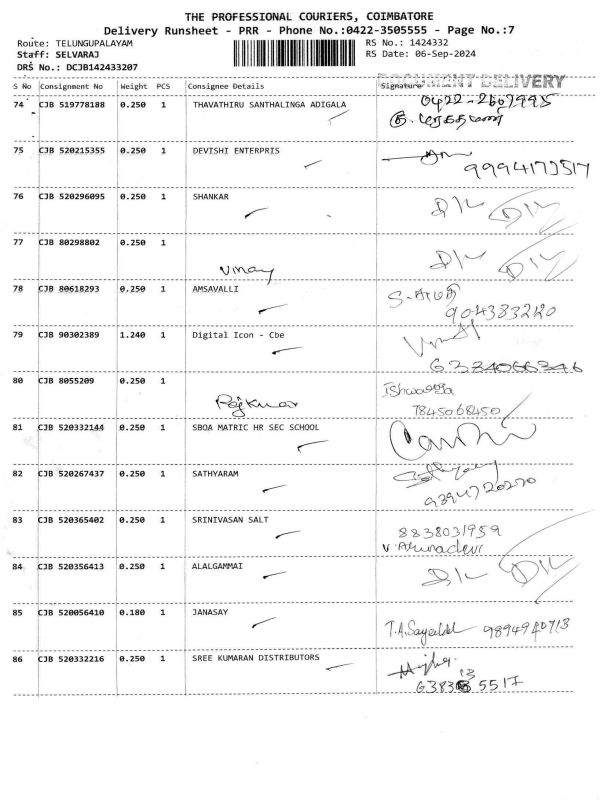 THE PROFESSIONAL COURIERS, COIMBATORE
Delivery Runsheet - PRR - Phone No.:0422-3505555 - Page No.:7
Route: TELUNGUPALAYAM RS No.: 1424332
Staff: SELVARAJ RS Date: 06-Sep-2024
DRS No.: DCJB142433207
DOCUMENT DELIVERY
S No Consignment No Weight PCS Consignee Details Signature
74 CJB 519778188 0.250 1 THAVATHIRU SANTHALINGA ADIGALA 0422-2607995
75 CJB 520215355 0.250 1 DEVISHI ENTERPRIS
9994173517
76 CJB 520296095 0.250 1 SHANKAR D/L D/L
77 CJB 80298802 0.250 1 D/L D/L
Vinay
78 CJB 80618293 0.250 1 AMSAVALLI
79 CJB 90302389 1.240 1 Digital Icon - Cbe
80 CJB 8055209 0.250 1
Rajkumar 7845068450
81 CJB 520332144 0.250 1 SBOA MATRIC HR SEC SCHOOL
82 CJB 520267437 0.250 1 SATHYARAM
83 CJB 520365402 0.250 1 SRINIVASAN SALT 8838031959
V. Arunadevi
84 CJB 520356413 0.250 1 ALALGAMMAI D/L D/L
85 CJB 520056410 0.180 1 JANASAY
86 CJB 520332216 0.250 1 SREE KUMARAN DISTRIBUTORS